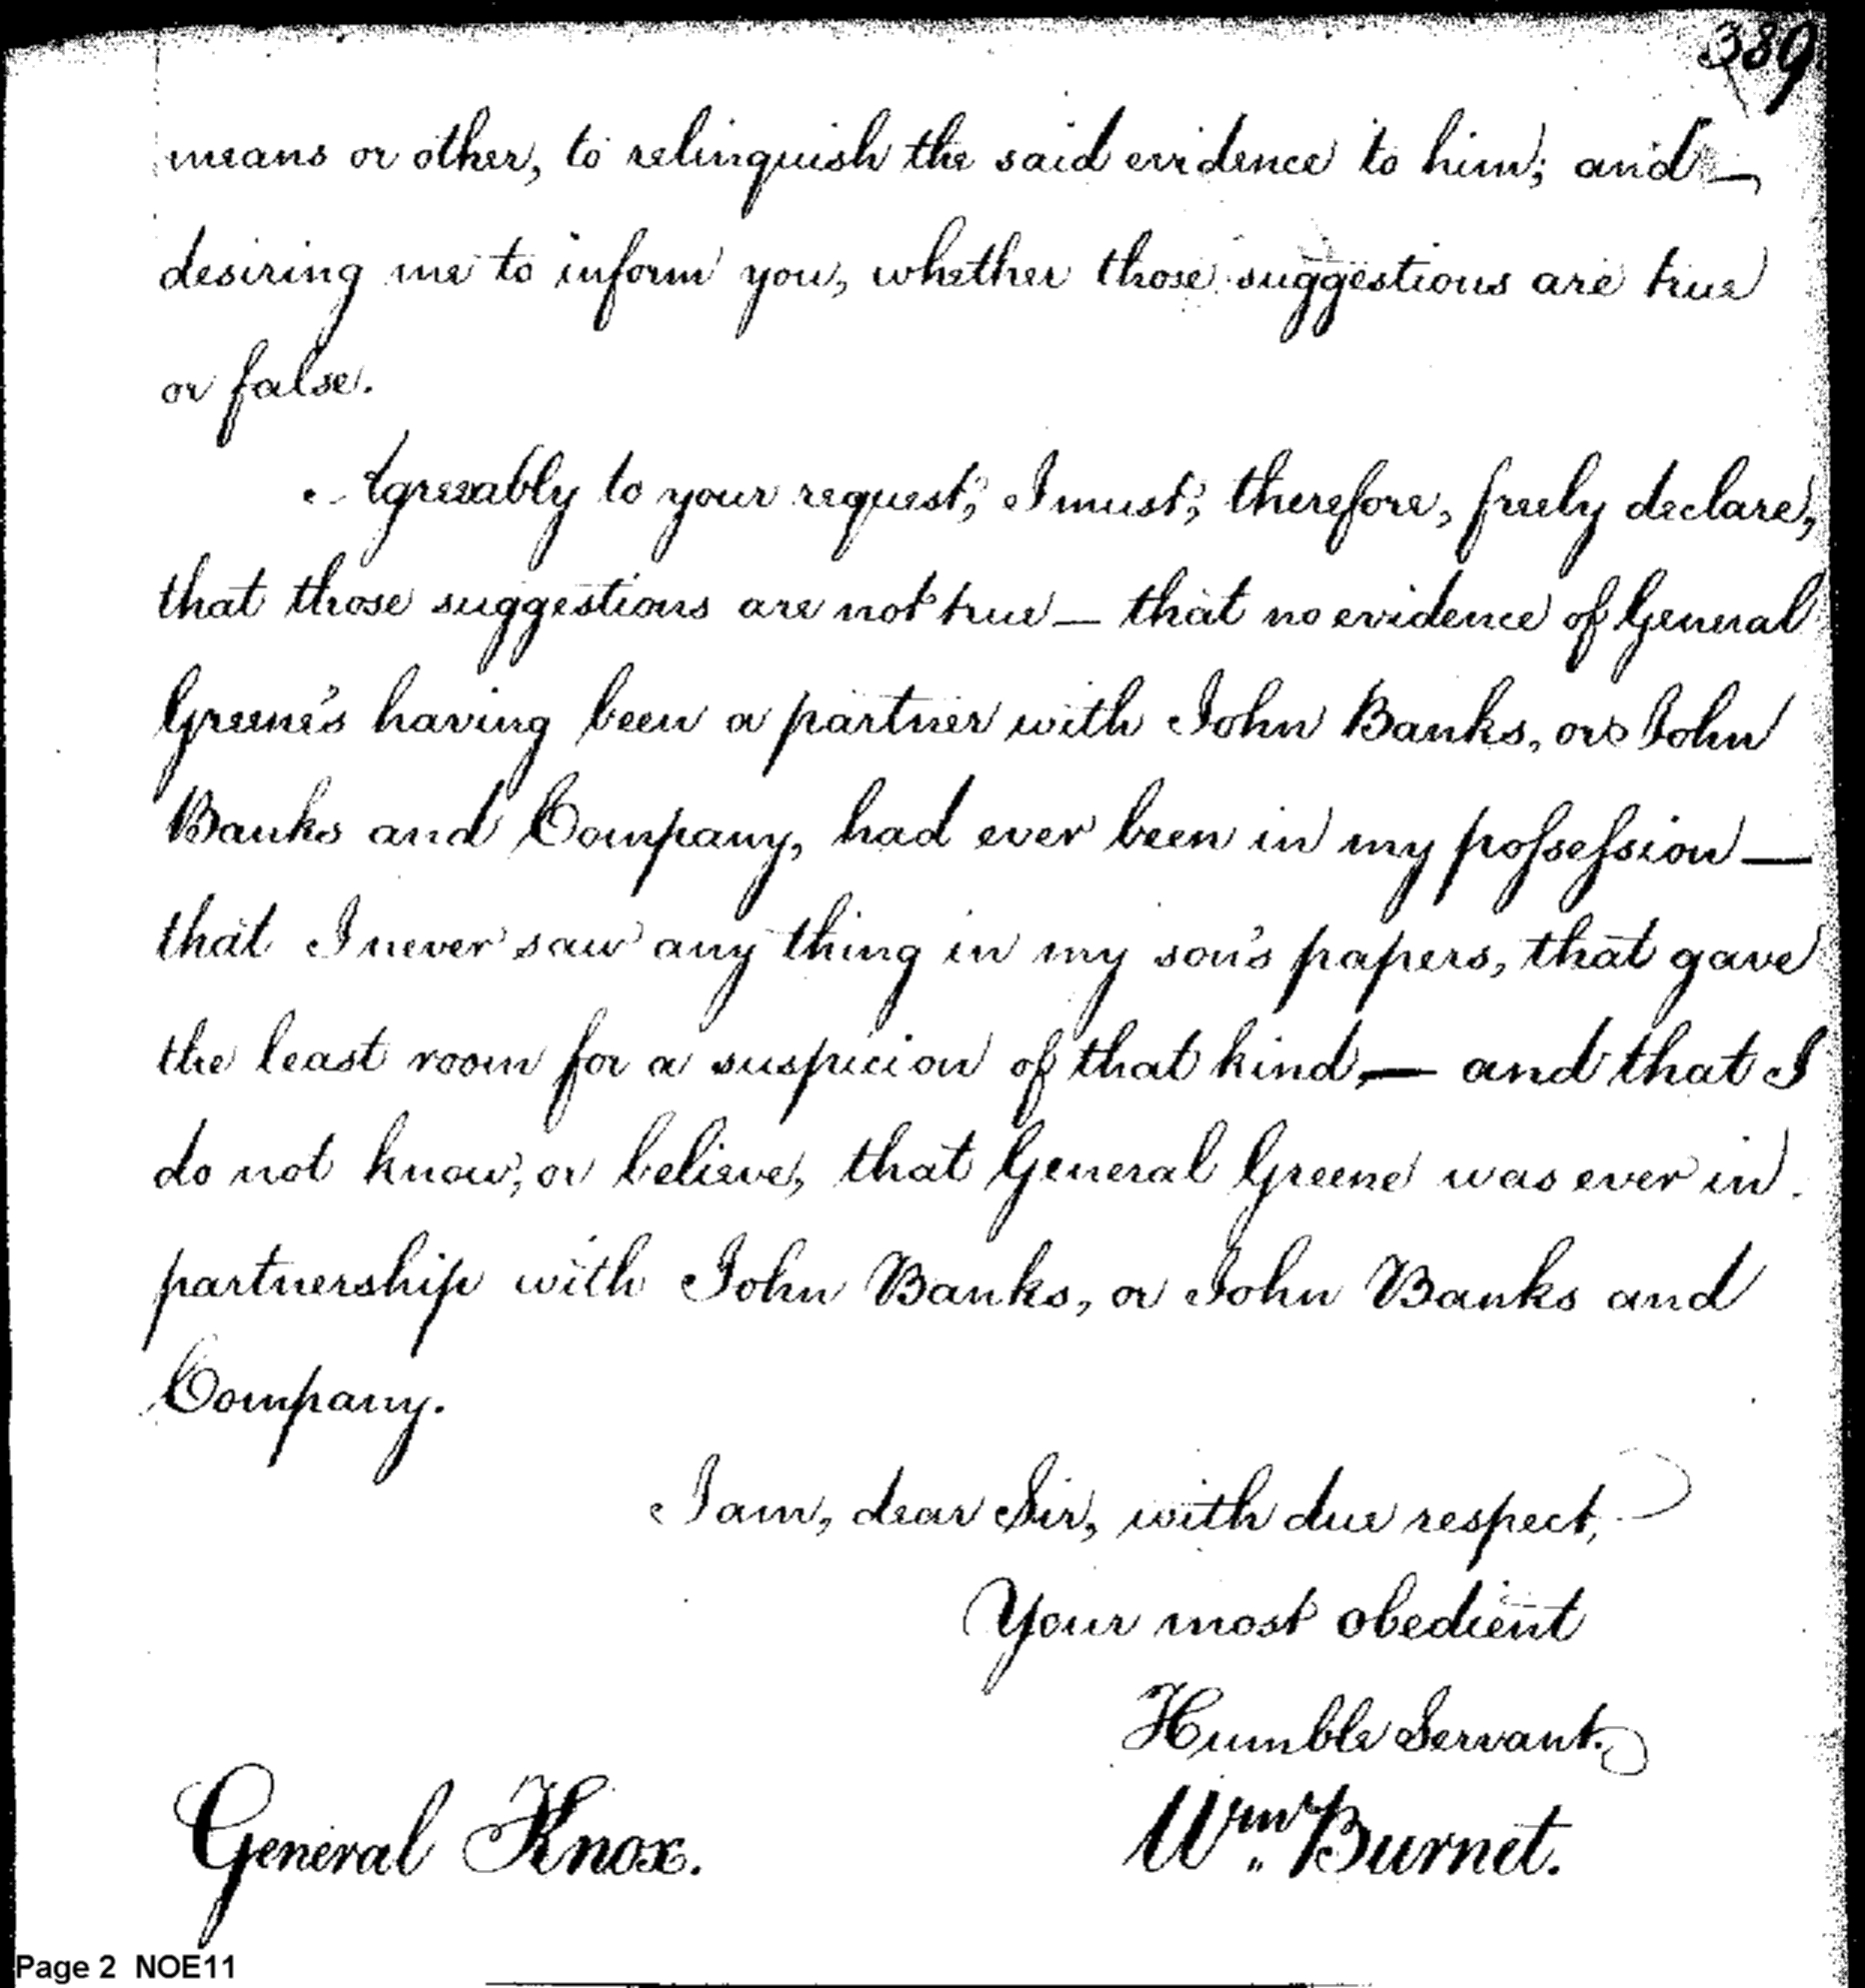 389
means or other, to relinquish the said evidence to him; and —
desiring me to inform you, whether those suggestions are true
or false.
Agreeably to your request, I must, therefore, freely declare,
that those suggestions are not true — that no evidence of General
Greene's having been a partner with John Banks, or John
Banks and Company, had ever been in my possession —
that I never saw any thing in my son's papers, that gave
the least room for a suspicion of that kind, — and that I
do not know, or believe, that General Greene was ever in
partnership with John Banks, or John Banks and
Company.
I am, dear Sir, with due respect,
Your most obedient
Humble Servant.
General Knox. Wm. Burnet.
Page 2 NOE11